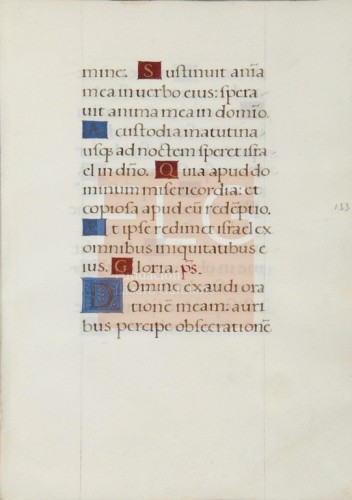 mine. Sustinuit aĩa
mea in verbo eius: spera
vit anima mea in domĩo.
A custodia matutina
usq; ad noctem speret isra
el in dño. Quia apud do
minum misericordia: et
copiosa apud eũ redẽptio.
Et ipse redimet israel ex
omnibus iniquitatibus e
ius. Gloria. ps.
Domine exaudi ora
tionẽ meam: auri
bus percipe obsecrationẽ
133
FLG